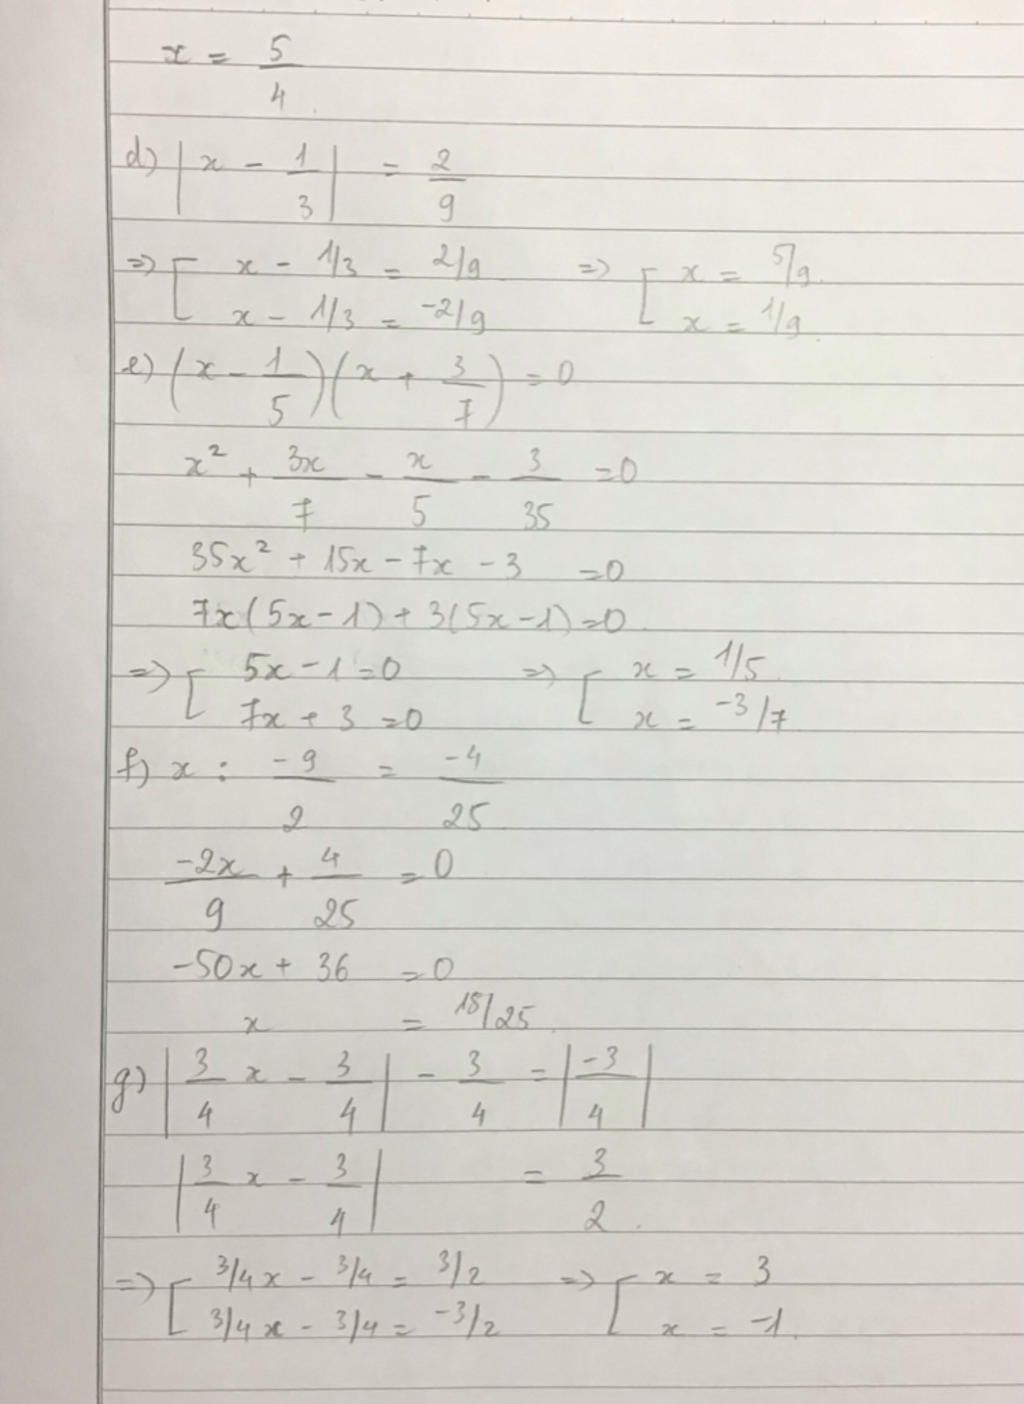 x = 5/4.
d) |x - 1/3| = 2/9
=> [ x - 1/3 = 2/9 => [ x = 5/9.
x - 1/3 = -2/9 x = 1/9.
e) (x - 1/5)(x + 3/7) = 0
x² + 3x/7 - x/5 - 3/35 = 0
35x² + 15x - 7x - 3 = 0
7x(5x - 1) + 3(5x - 1) = 0.
=> [ 5x - 1 = 0 => [ x = 1/5.
7x + 3 = 0 x = -3/7
f) x : -9/2 = -4/25
-2x/9 + 4/25 = 0
-50x + 36 = 0
x = 18/25.
g) |3/4 x - 3/4| - 3/4 = |-3/4|
|3/4 x - 3/4| = 3/2.
=> [ 3/4x - 3/4 = 3/2 => [ x = 3
3/4x - 3/4 = -3/2 x = -1.